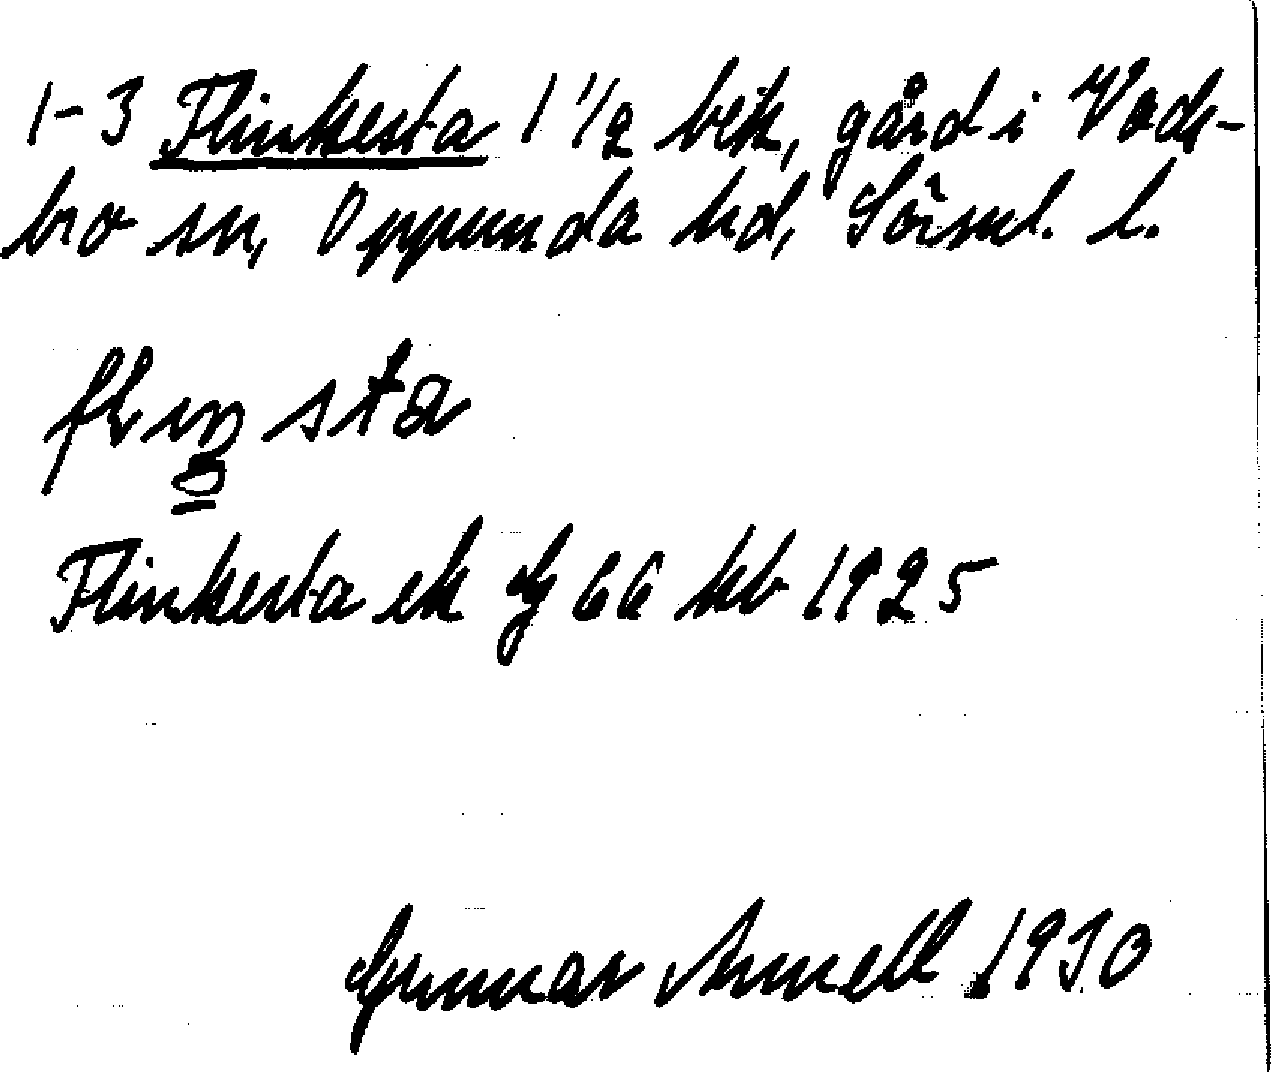 1-3 Flinkesta 1 1/2 bek, gård i Vads-
bro sn, Oppunda hd, Sörml. l.
fliŋsta
Flinkesta ek bl 66 kb 1925
Gunnar Arnell 1930